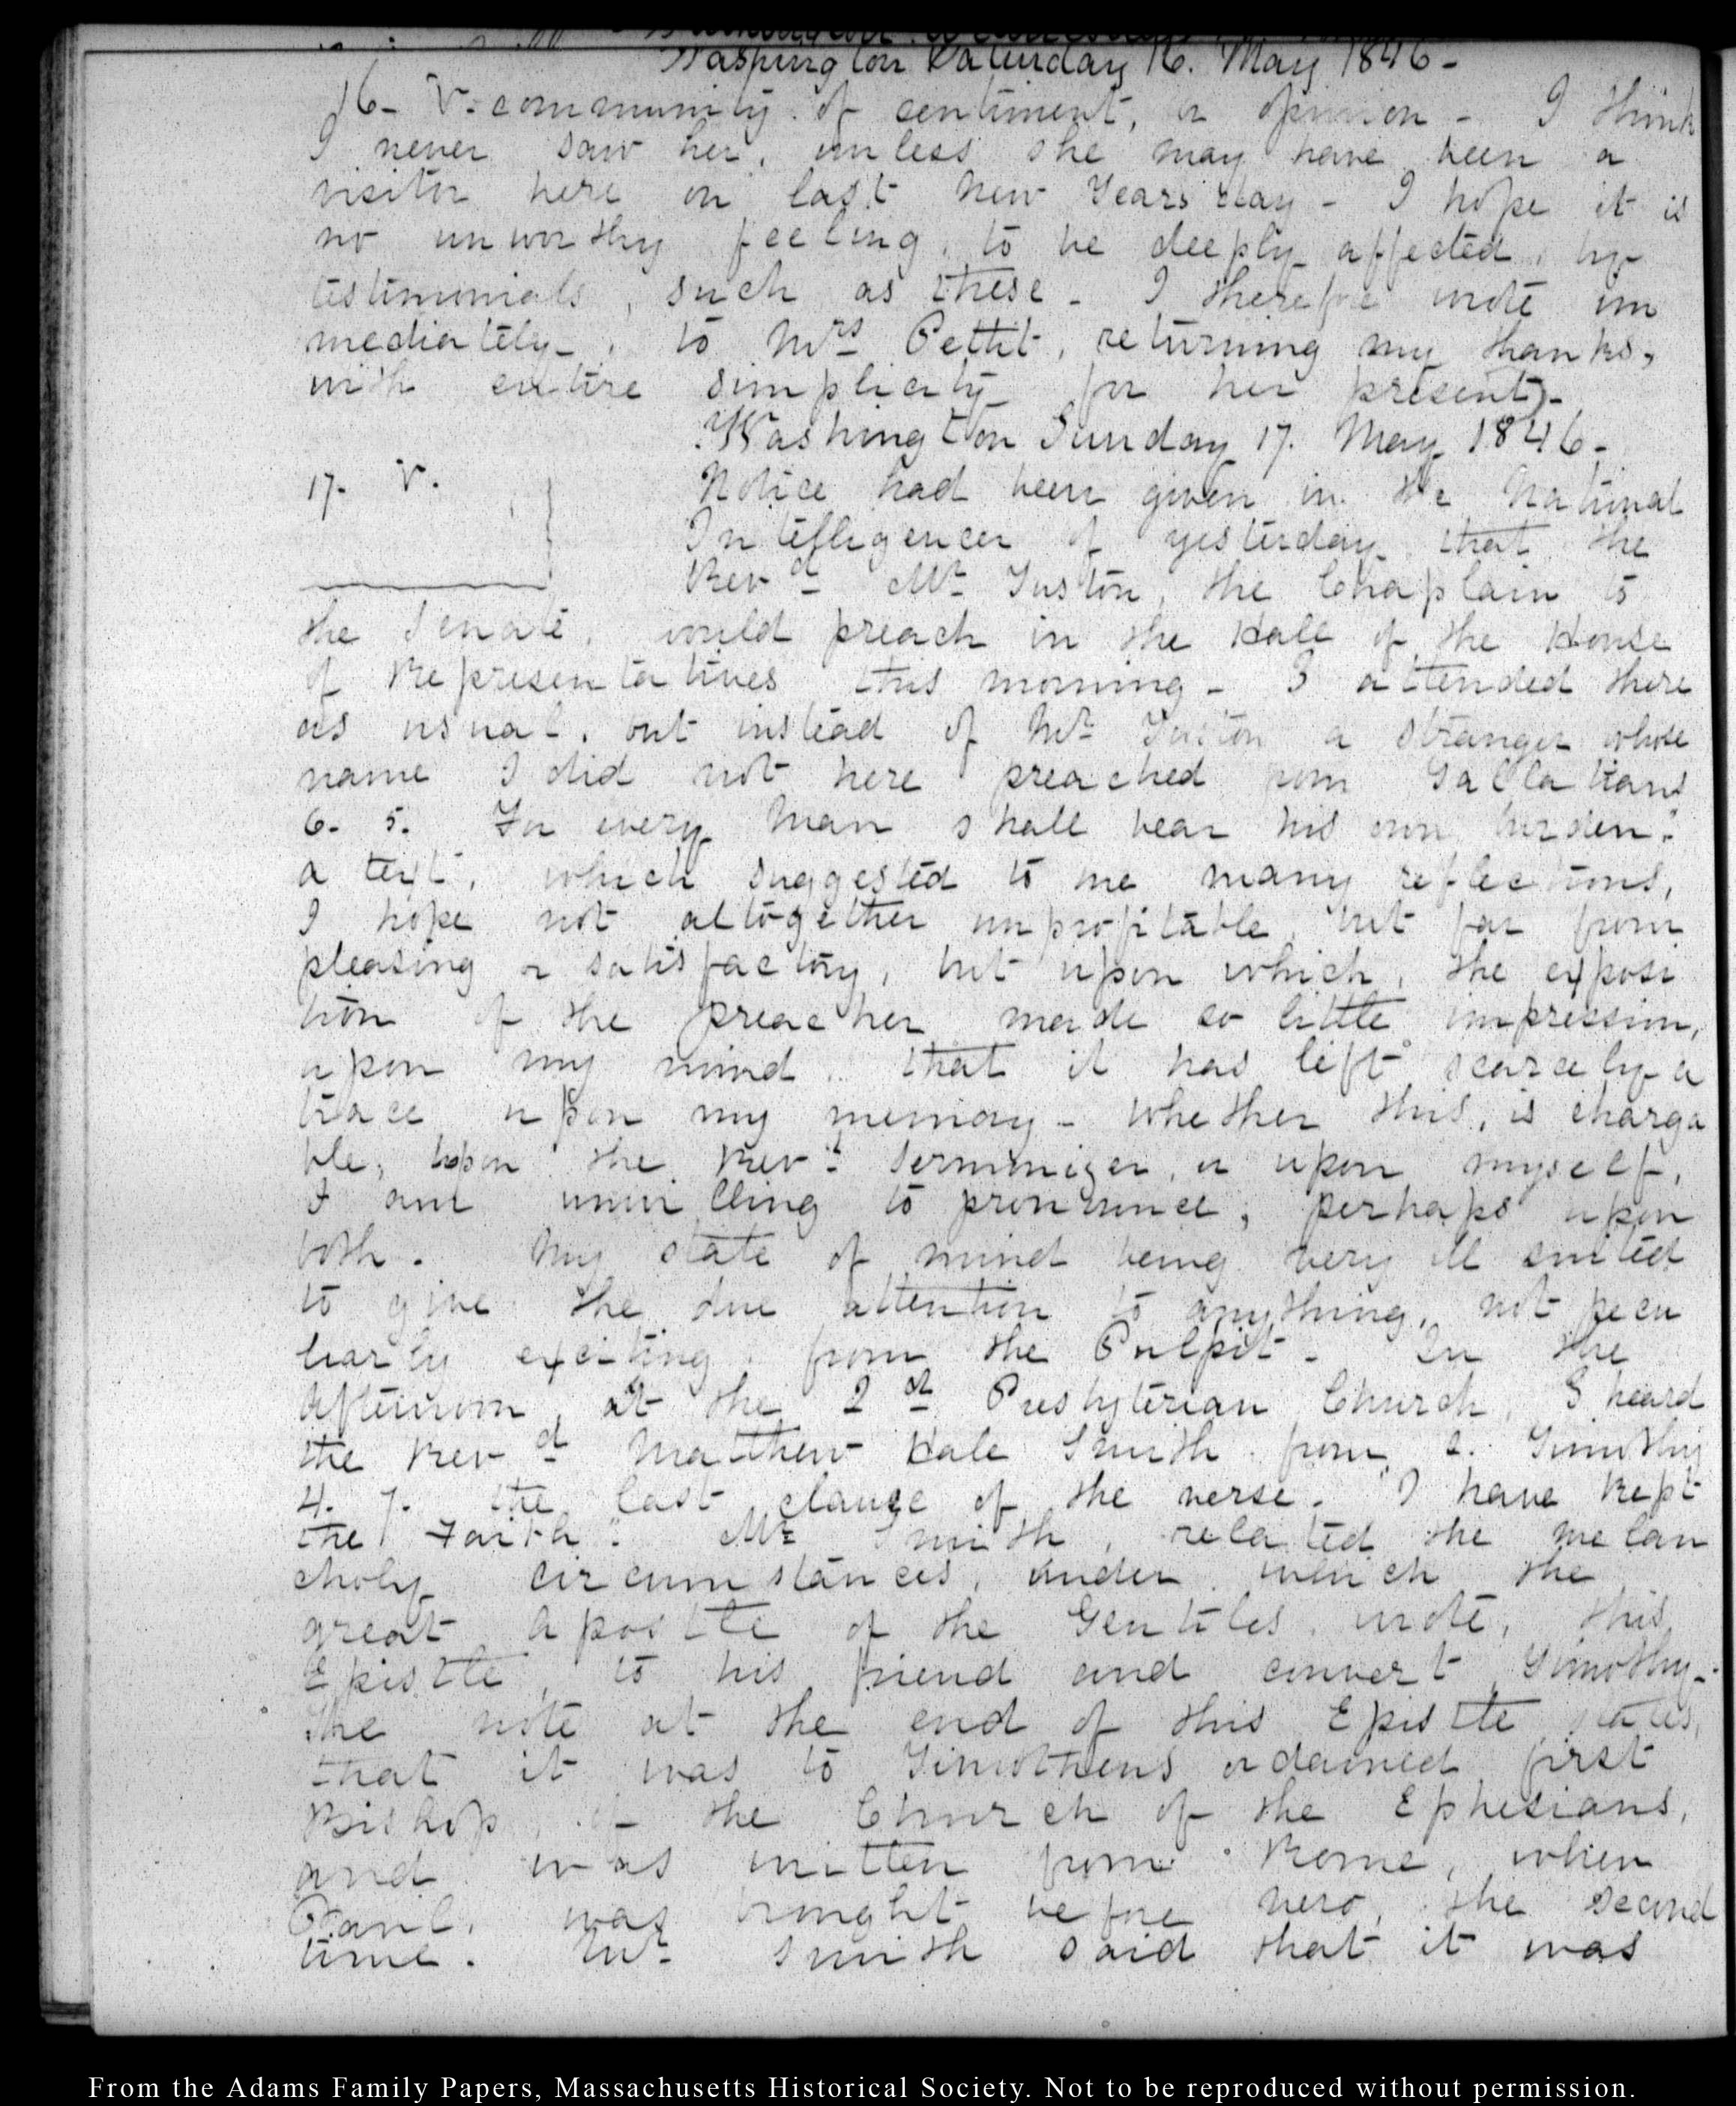 Washington Saturday 16. May 1846-
16- V. community of sentiment, or opinion - I think
I never saw her, unless she may have been a
visitor here on last New Years day - I hope it is
no unworthy feeling, to be deeply affected, by
testimonials, such as these - I therefore wrote im
mediately, to Mrs Pettit, returning my thanks,
with entire simplicity for her present)-
Washington Sunday 17. May 1846-
17. V. Notice had been given in the National
Intelligencer of yesterday that the
Revd Mr Tuston, the Chaplain to
the Senate, would preach in the Hall of the House
of Representatives this morning - I attended there
as usual, but instead of Mr Tuston a stranger whose
name I did not here preached from Gallatians
6. 5. For every man shall bear his own burden."
a text, which suggested to me many reflections,
I hope not altogether unprofitable, but far from
pleasing or satisfactory, but upon which, the exposi
tion of the preacher made so little impression,
upon my mind, that it has left scarcely a
trace upon my memory - Whether this, is charga
ble, upon the Revd Sermonizer, or upon myself,
I am unwilling to pronounce, perhaps upon
both. My state of mind being very ill suited
to give the due attention to anything, not pecu
liarly exciting, from the Pulpit - In the
afternoon, at the 2d Presbyterian Church, I heard
the Revd Matthew Hale Smith from 2. Timothy
4. 7. the last clause of the verse. "I have kept
the Faith". Mr Smith, related the melan
choly circumstances, under which the
great Apostle of the Gentiles, wrote, this
Epistle, to his friend and convert Timothy-
The note at the end of this Epistle states,
that it was to Timotheus ordained first
Bishop, of the Church of the Ephesians,
and was written from Rome, when
Paul, was brought before Nero, the second
time. Mr Smith said that it was
From the Adams Family Papers, Massachusetts Historical Society. Not to be reproduced without permission.